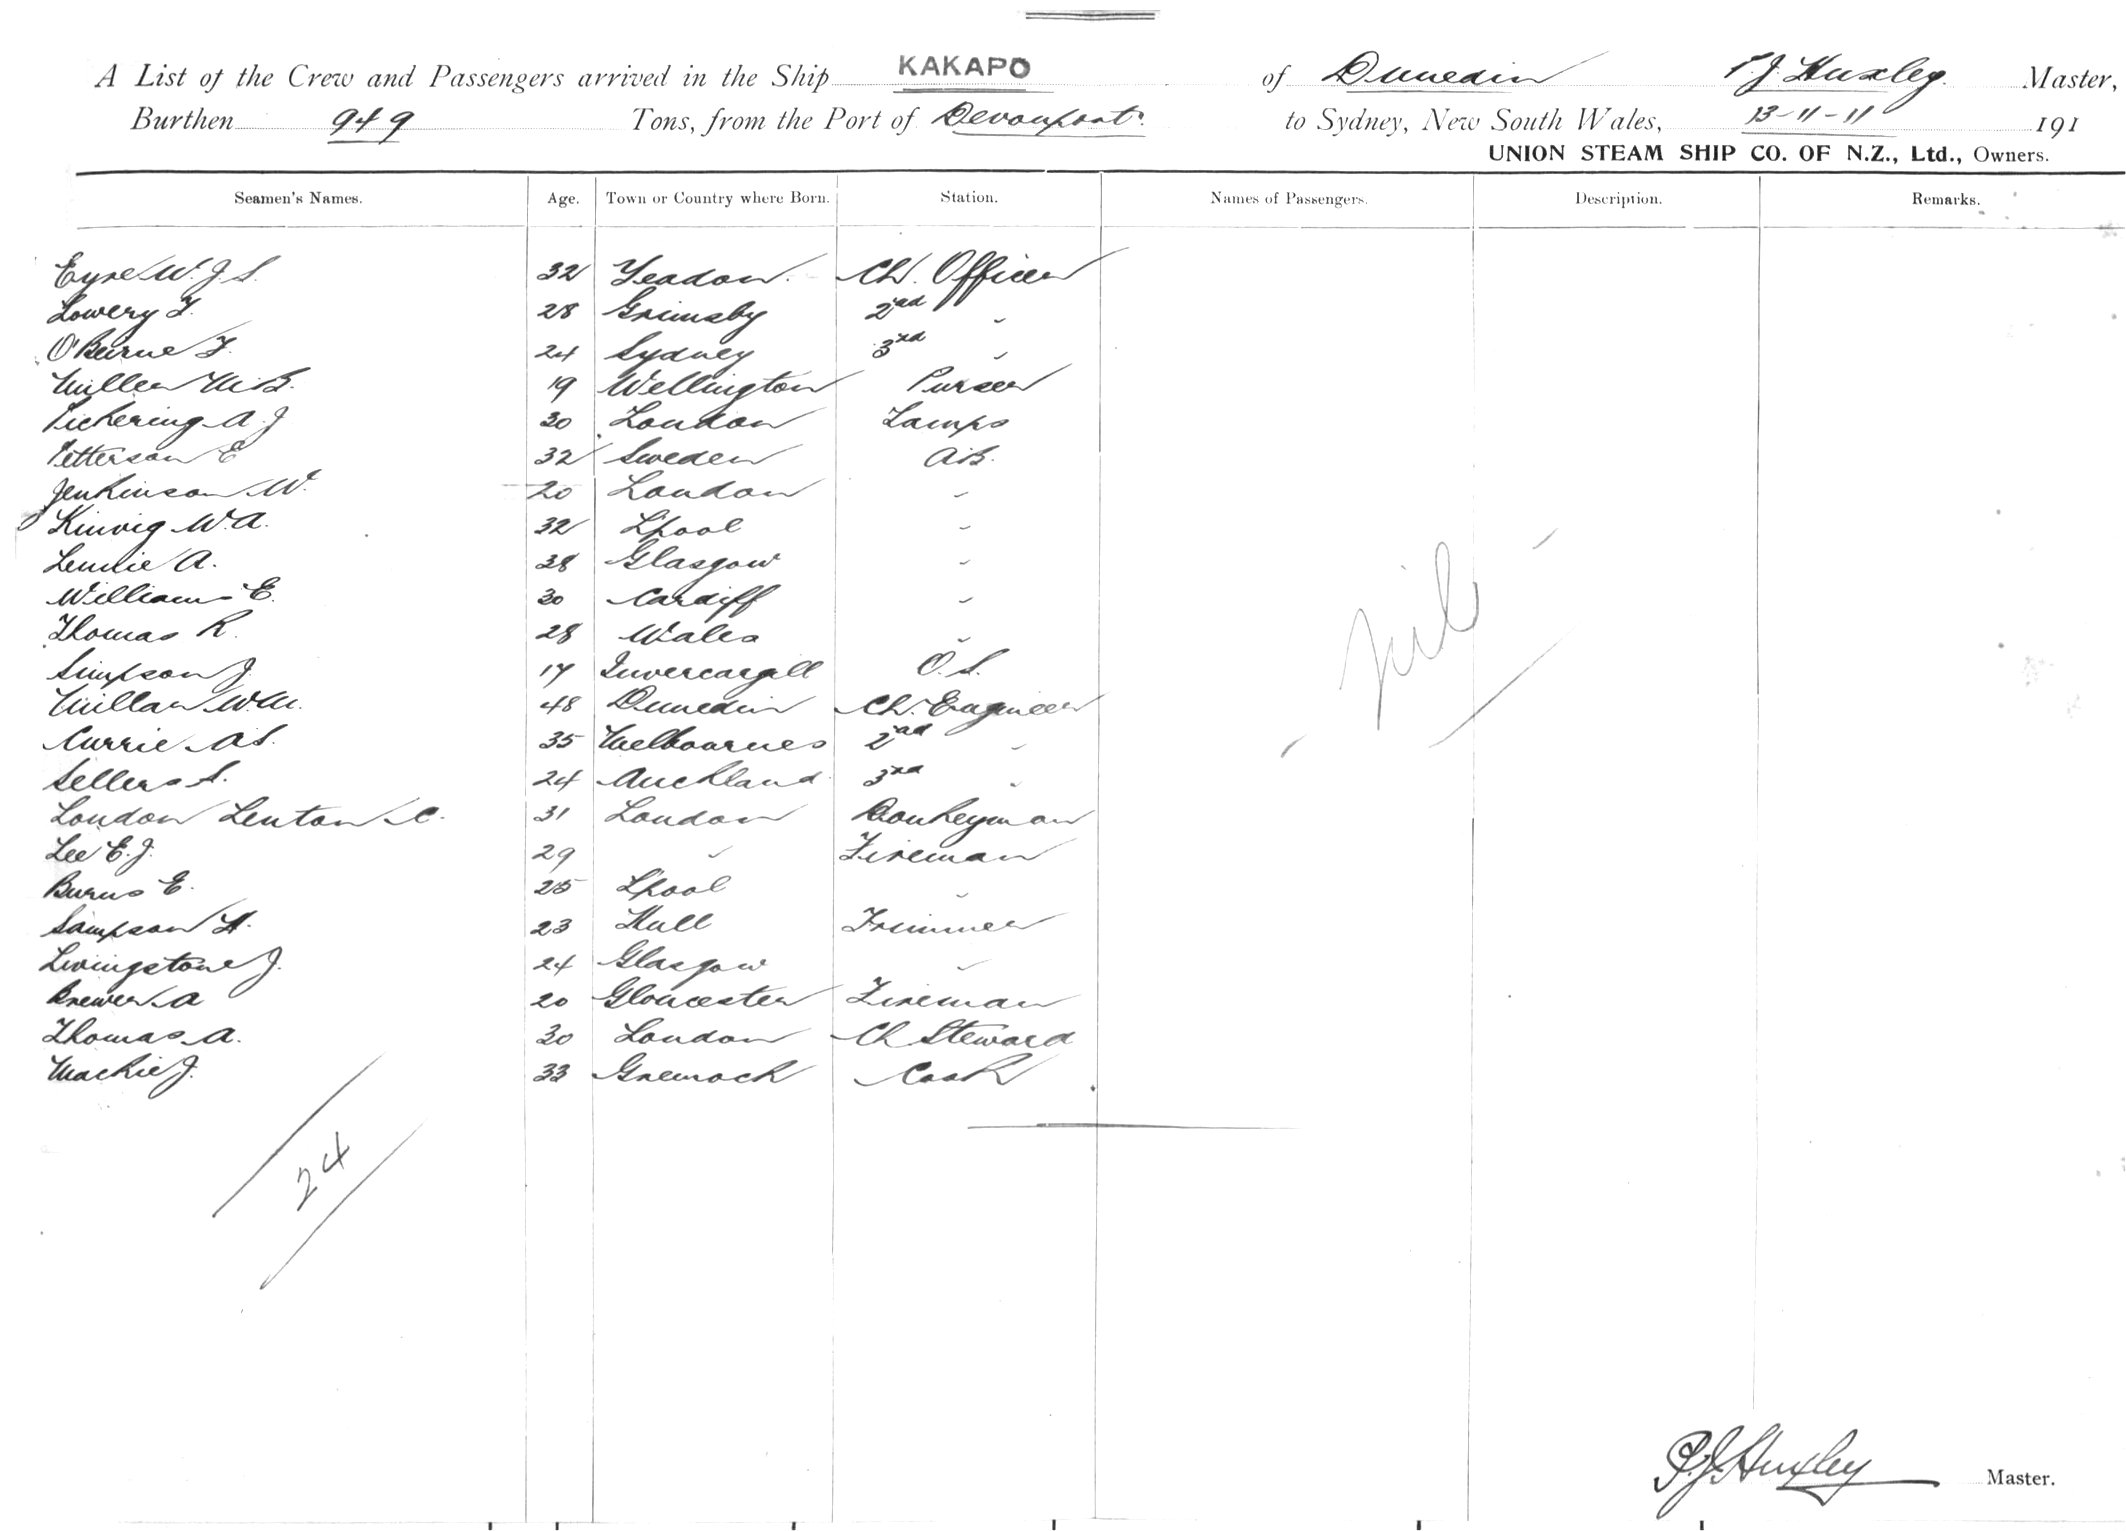 A List of the Crew and Passengers arrived in the Ship KAKAPO of Dunedin P. J. Huxley. Master,
Burthen 949 Tons, from the Port of Devonport. to Sydney, New South Wales, 13-11-11 191
UNION STEAM SHIP CO. OF N.Z., Ltd., Owners.
Seamen's Names. Age. Town or Country where Born. Station. Names of Passengers. Description. Remarks.
Eyre W. J. S. 32 Yeadon. Ch. Officer
Lowery F. 28 Grimsby 2nd "
O'Beirne F. 24 Sydney 3rd "
Miller M.B. 19 Wellington Purser
Pickering A J 30 London Lamps
Petterson E 32 Sweden A.B.
Jenkinson W. 20 London "
Kinvig W.A. 32 L'pool "
Lennie A. 38 Glasgow "
Williams E. 30 Cardiff "
Thomas R. 28 Wales "
Simpson J. 17 Invercargill O.S.
Millar W.M. 48 Dunedin Ch. Engineer
Currie A.S. 35 Melbourne 2nd "
Sellers S. 24 Auckland 3rd "
London Lenton C. 31 London Donkeyman
Lee E.J. 29 " Fireman
Burns E. 25 L'pool "
Sampson H. 23 Hull Trimmer
Livingstone J. 24 Glasgow "
Brewer A 20 Gloucester Fireman
Thomas A. 30 London Ch Steward
Mackie J. 33 Greenock Cook
- Nil -
24
P.J. Huxley Master.